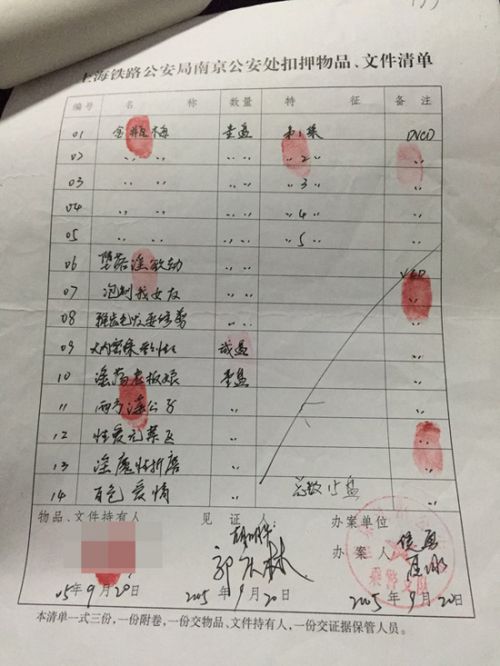 上海铁路公安局南京公安处扣押物品、文件清单
编号 名称 数量 特征 备注
01 金瓶梅 壹盘 第1集 DVCD
02 〃 〃 〃 〃2〃 〃
03 〃 〃 〃 〃3〃 〃
04 〃 〃 〃 〃4〃 〃
05 〃 〃 〃 〃5〃 〃
06 堕落淫 〃 VCD
07 泡制我女友 〃 〃
08 〃 〃
09 大内密 贰盘 〃
10 淫荡老板娘 壹盘 〃
11 两个淫公子 〃 〃
12 性爱无禁区 〃 〃
13 淫魔性折磨 〃 〃
14 百色爱情 〃 总数15盘 〃
物品、文件持有人 见证人 办案单位
办案人
05年9月20日 2005年9月20日 2005年9月20日
本清单一式三份，一份附卷，一份交物品、文件持有人，一份交证据保管人员。